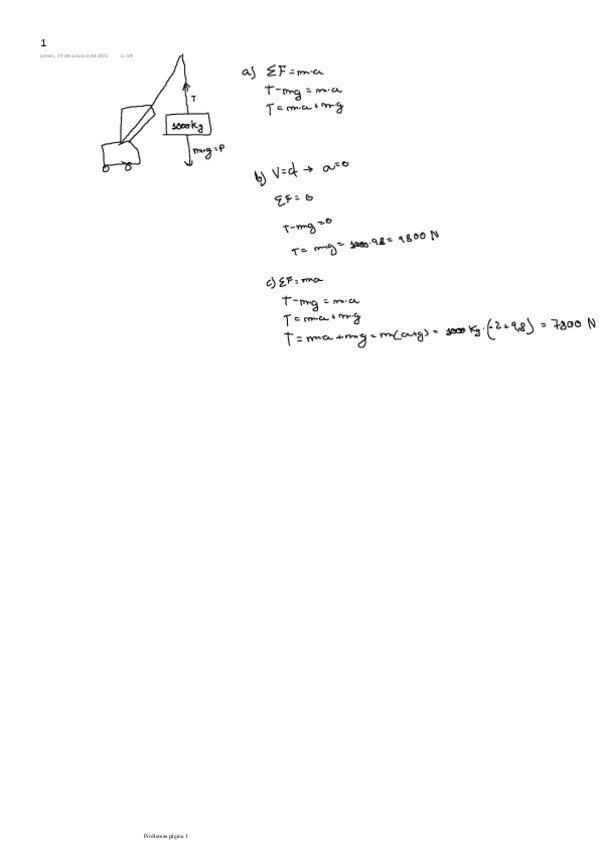 1
jueves, 20 de octubre de 2022 11:59
T
1000 kg
m·g=P
a) ΣF=m·a
T-mg = m·a
T=m·a+m·g
b) V=d → a=0
ΣF=0
T-mg=0
T= mg= 1000·9.8= 9800 N
c) ΣF=ma
T-mg=m·a
T=m·a+m·g
T=ma+mg=m(a+g)= 1000 Kg·(-2+9,8) = 7800 N
Problemas página 1